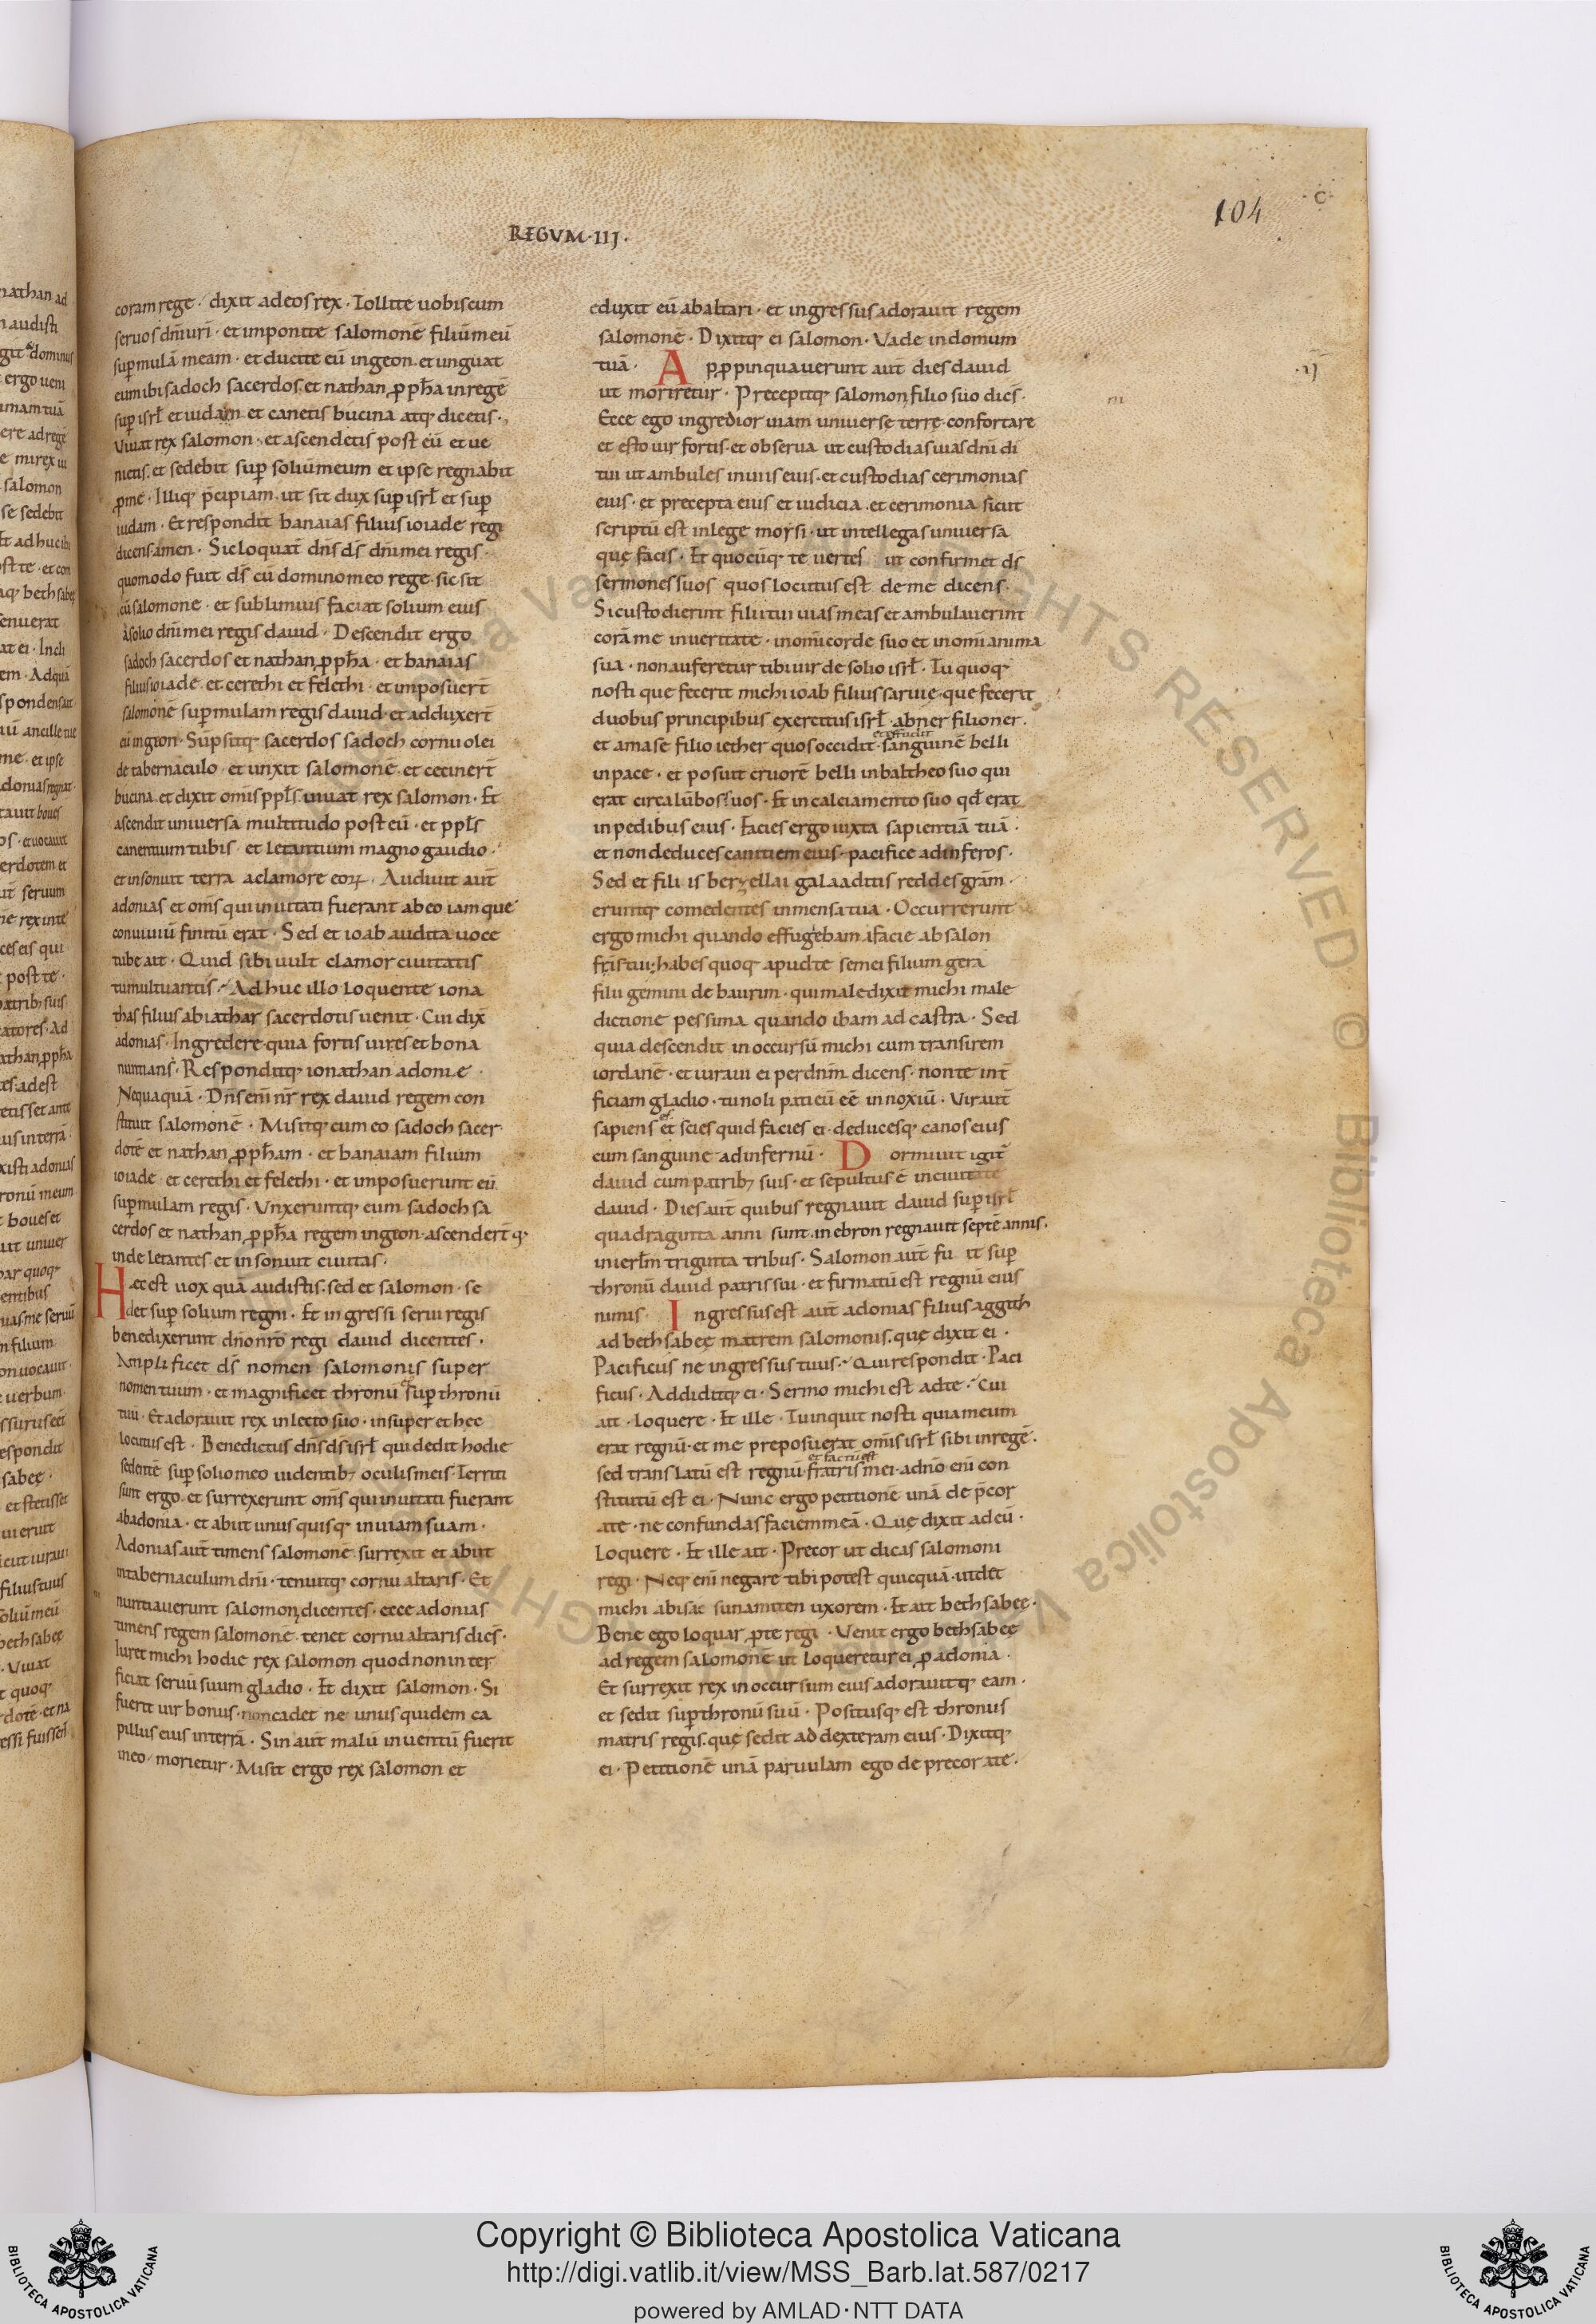 REGVM·III·
104
c
coram rege· dixit ad eos rex· Tollite uobiscum
seruos dn̄i uri· et imponite salomonē filiū meū
sup̄ mulā meam· et ducite eū in geon· et unguat
eum ibi sadoch sacerdos· et nathan ꝓph̄a in regē
sup̄ isrł et iudam· et canetis bucina atq; dicetis·
Viuat rex salomon· et ascendetis post eū et ue
nietis· et sedebit sup̄ soliū meum et ipse regnabit
ꝓ me· Illiq; p̄cipiam· ut sit dux sup̄ isrł et sup̄
iudam· Et respondit banaias filius ioiade regi
dicens amen· Sic loquat̄ dn̄s d̄s dn̄i mei regis·
quomodo fuit d̄s cū domino meo rege· sic sit
cū salomone· et sublimius faciat solium eius
a solio dn̄i mei regis dauid· Descendit ergo
sadoch sacerdos et nathan ꝓph̄a· et banaias
filius ioiade· et cerethi et felethi· et imposuert̄
salomonē sup̄ mulam regis dauid· et adduxert̄
eū in geon· Sūpsitq; sacerdos sadoch cornu olei
de tabernaculo· et unxit salomonē· et cecinert̄
bucina· et dixit om̄is ppl̄s uiuat rex salomon· Et
ascendit uniuersa multitudo post eū· et ppl̄s
canentium tubis· et letantium magno gaudio·
et insonuit terra a clamore eoꝝ· Audiuit aut̄
adonias et om̄s qui inuitati fuerant ab eo iamque
conuiuiū finitū erat· Sed et ioab audita uoce
tube ait· Quid sibi uult clamor ciuitatis
tumultuantis· Adhuc illo loquente iona
thas filius abiathar sacerdotis uenit· Cui dix̄
adonias· Ingredere quia fortis uir es et bona
nuntians· Responditq; ionathan adonie·
Nequaquā· Dn̄s enī nr̄ rex dauid regem con
stituit salomonē· Misitq; cum eo sadoch sacer
dotē et nathan ꝓph̄am· et banaiam filium
ioiade et cerethi et felethi· et imposuerunt eū
sup̄ mulam regis· Vnxeruntq; eum sadoch sa
cerdos et nathan ꝓph̄a regem in geon· ascendert̄q·
inde letantes· et insonuit ciuitas·
Hæc est uox quā audistis· sed et salomon· se
det sup̄ solium regni· Et ingressi serui regis
benedixerunt dn̄o nr̄o regi dauid dicentes·
Amplificet d̄s nomen salomonis super
nomen tuum· et magnificet thronū ei' sup̄ thronū
tuū· Et adorauit rex in lecto suo· insuper et hec
locutus est· Benedictus dn̄s d̄s isrł qui dedit hodie
sedentē sup̄ solio meo uidentib; oculis meis· Territi
sunt ergo· et surrexerunt om̄s qui inuitati fuerant
ab adonia· et abiit unusquisq; in uiam suam·
Adonias aut̄ timens salomonē surrexit et abiit
in tabernaculum dn̄i· tenuitq; cornu altaris· Et
nuntiauerunt salomoni dicentes· ecce adonias
timens regem salomonē· tenet cornu altaris dic̄s·
Iuret michi hodie rex salomon quod non inter
ficiat seruū suum gladio· Et dixit salomon· Si
fuerit uir bonus· non cadet ne unus quidem ca
pillus eius in terrā· Sin aut̄ malū inuentū fuerit
in eo· morietur· Misit ergo rex salomon et
eduxit eū ab altari· et ingressus adorauit regem
salomonē· Dixitq; ei salomon· Vade in domum
tuā· Appropinquauerunt aut̄ dies dauid
·ij
ut moriretur· Precepitq; salomoni filio suo dic̄s·
Ecce ego ingredior uiam uniuerse terre· confortare
et esto uir fortis· et obserua ut custodias uias dn̄i di
tui ut ambules in uiis eius· et custodias cerimonias
eius· et precepta eius et iudicia· et cerimonia sicut
scriptū est in lege moysi· ut intellegas uniuersa
que facis· Et quocūq; te uertes ut confirmet d̄s
sermones suos quos locutus est de me dicens·
Si custodierint filii tui uias meas et ambulauerint
corā me in ueritate· in om̄i corde suo et in om̄i anima
sua· non auferetur tibi uir de solio isrł· Tu quoq;
nosti que fecerit michi ioab filius saruie· que fecerit
duobus principibus exercitus isrł· abner filio ner·
et amase filio iether quos occidit· et effudit sanguinē belli
in pace· et posuit cruorē belli in baltheo suo qui
erat circa lūbos suos· Et in calciamento suo qđ erat
in pedibus eius· Facies ergo iuxta sapientiā tuā·
et non deduces canitiem eius pacifice ad inferos·
Sed et filiis berzellai galaaditis reddes grām·
eruntq; comedentes in mensa tua· Occurrerunt
ergo michi quando effugebam a facie absalon
fr̄is tui· habes quoq; apud te semei filium gera
filii gemini de baurim· qui maledixit michi male
dictione pessima quando ibam ad castra· Sed
quia descendit in occursū michi cum transirem
iordanē· et iuraui ei per dn̄m dicens· non te int̄
ficiam gladio· tu noli pati eū eē innoxiū· Vir aut̄
sapiens es et scies quid facies ei· deducesq; canos eius
cum sanguine ad infernū· Dormiuit igit̄
dauid cum patrib; suis· et sepultus ē in ciuitate
dauid· Dies aut̄ quibus regnauit dauid sup̄ isrł
quadraginta anni sunt· in ebron regnauit septē annis·
in ierłm triginta tribus· Salomon aut̄ fu it sup̄
thronū dauid patris sui· et firmatū est regnū eius
nimis· Ingressus est aut̄ adonias filius aggith
ad bethsabeę matrem salomonis· quę dixit ei·
Pacificus ne ingressus tuus· Qui respondit· Paci
ficus· Addiditq; ei· Sermo michi est ad te· Cui
ait· Loquere· Et ille· Tu inquit nosti quia meum
erat regnū· et me preposuerat om̄is isrł sibi in regē·
sed translatū est regnū· et factū est fratris mei· a dn̄o enī con
stitutū est ei· Nunc ergo petitionē unā dep̄cor
a te· ne confundas faciem meā· Quę dixit ad eū·
Loquere· Et ille ait· Precor ut dicas salomoni
regi· Neq; enī negare tibi potest quicquā· ut det
michi abisac sunamiten uxorem· Et ait bethsabeę·
Bene ego loquar ꝓ te regi· Venit ergo bethsabeę
ad regem salomonē ut loqueretur ei ꝓ adonia·
Et surrexit rex in occursum eius adorauitq; eam·
et sedit sup̄ thronū suū· Positusq; est thronus
matris regis· quę sedit ad dexteram eius· Dixitq;
ei· Petitionē unā paruulam ego deprecor a te·
Copyright © Biblioteca Apostolica Vaticana
http://digi.vatlib.it/view/MSS_Barb.lat.587/0217
powered by AMLAD·NTT DATA
BIBLIOTECA APOSTOLICA VATICANA
BIBLIOTECA APOSTOLICA VATICANA